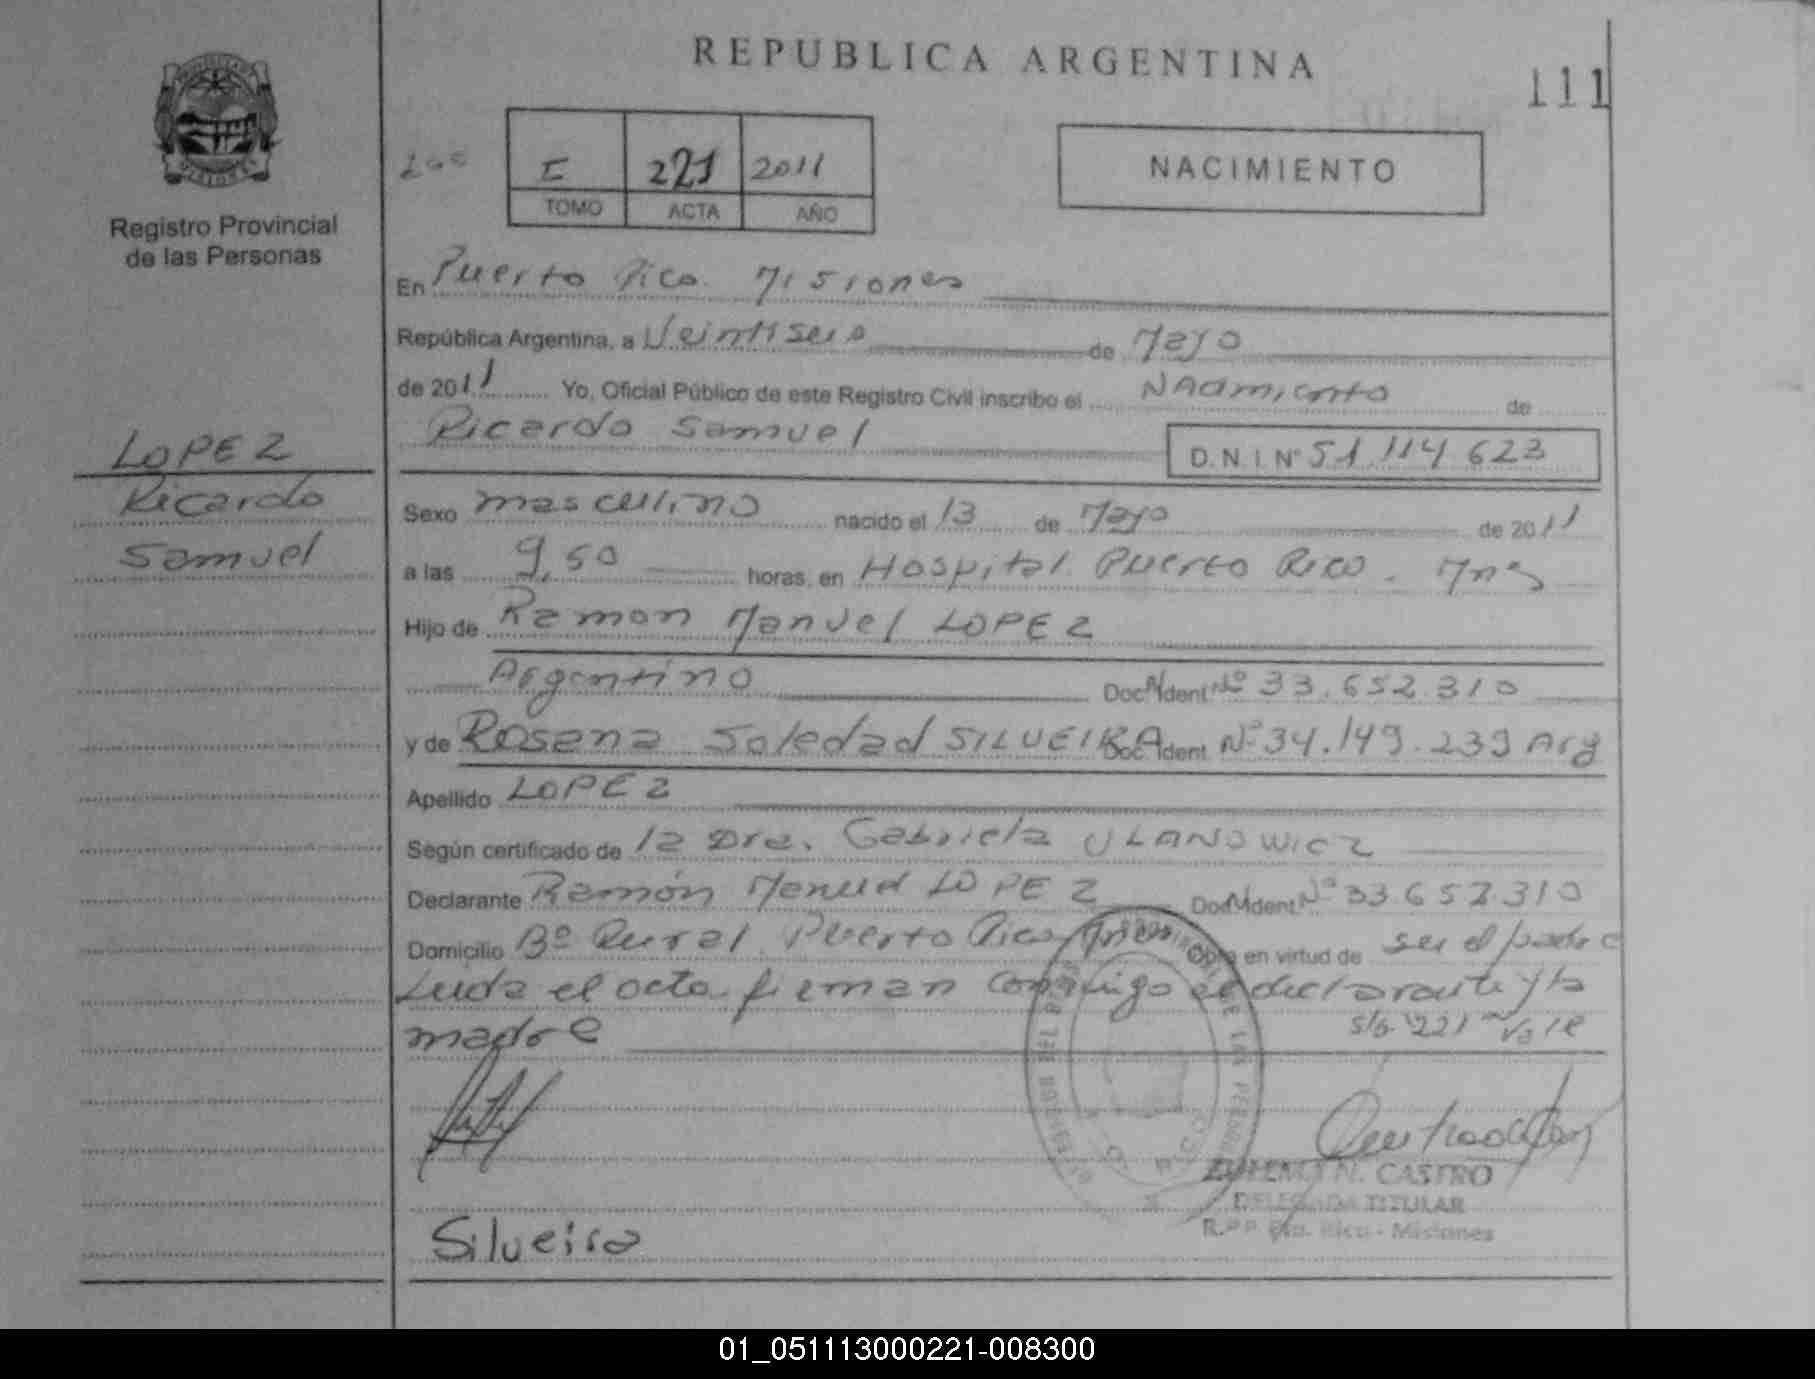 REPUBLICA ARGENTINA
111
I 221 2011
TOMO ACTA AÑO
NACIMIENTO
Registro Provincial
de las Personas
LOPEZ
Ricardo
Samuel
En Puerto Rico. Misiones
República Argentina, a Veintiseis de Mayo
de 2011 Yo, Oficial Público de este Registro Civil inscribo el Nacimiento de
Ricardo Samuel D.N.I. Nº 51.114 623
Sexo masculino nacido el 13 de Mayo de 2011
a las 9,50 horas, en Hospital Puerto Rico. Mnes
Hijo de Ramon Manuel LOPEZ
Argentino Doc. Ident. Nº 33.652.310
y de Rosana Soledad SILVEIRA Doc. Ident. Nº 34.149.239 Arg
Apellido LOPEZ
Según certificado de la Dra. Gabriela ULANOWICZ
Declarante Ramón Manuel LOPEZ Doc. Ident. Nº 33.652.310
Domicilio Bº Rural. Puerto Rico Mnes Obra en virtud de ser el padre
Leida el acta firman conmigo el declarante y la
madre s/b. 221 Vale
Silveira
ZULEMA N. CASTRO
DELEGADA TITULAR
R.P.P. Pto. Rico - Misiones
01_051113000221-008300